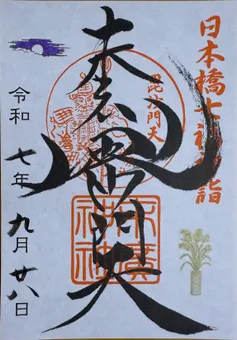 日本橋七福神詣
毘沙門天
毘沙門天
末廣
神社
令和七年九月廿八日